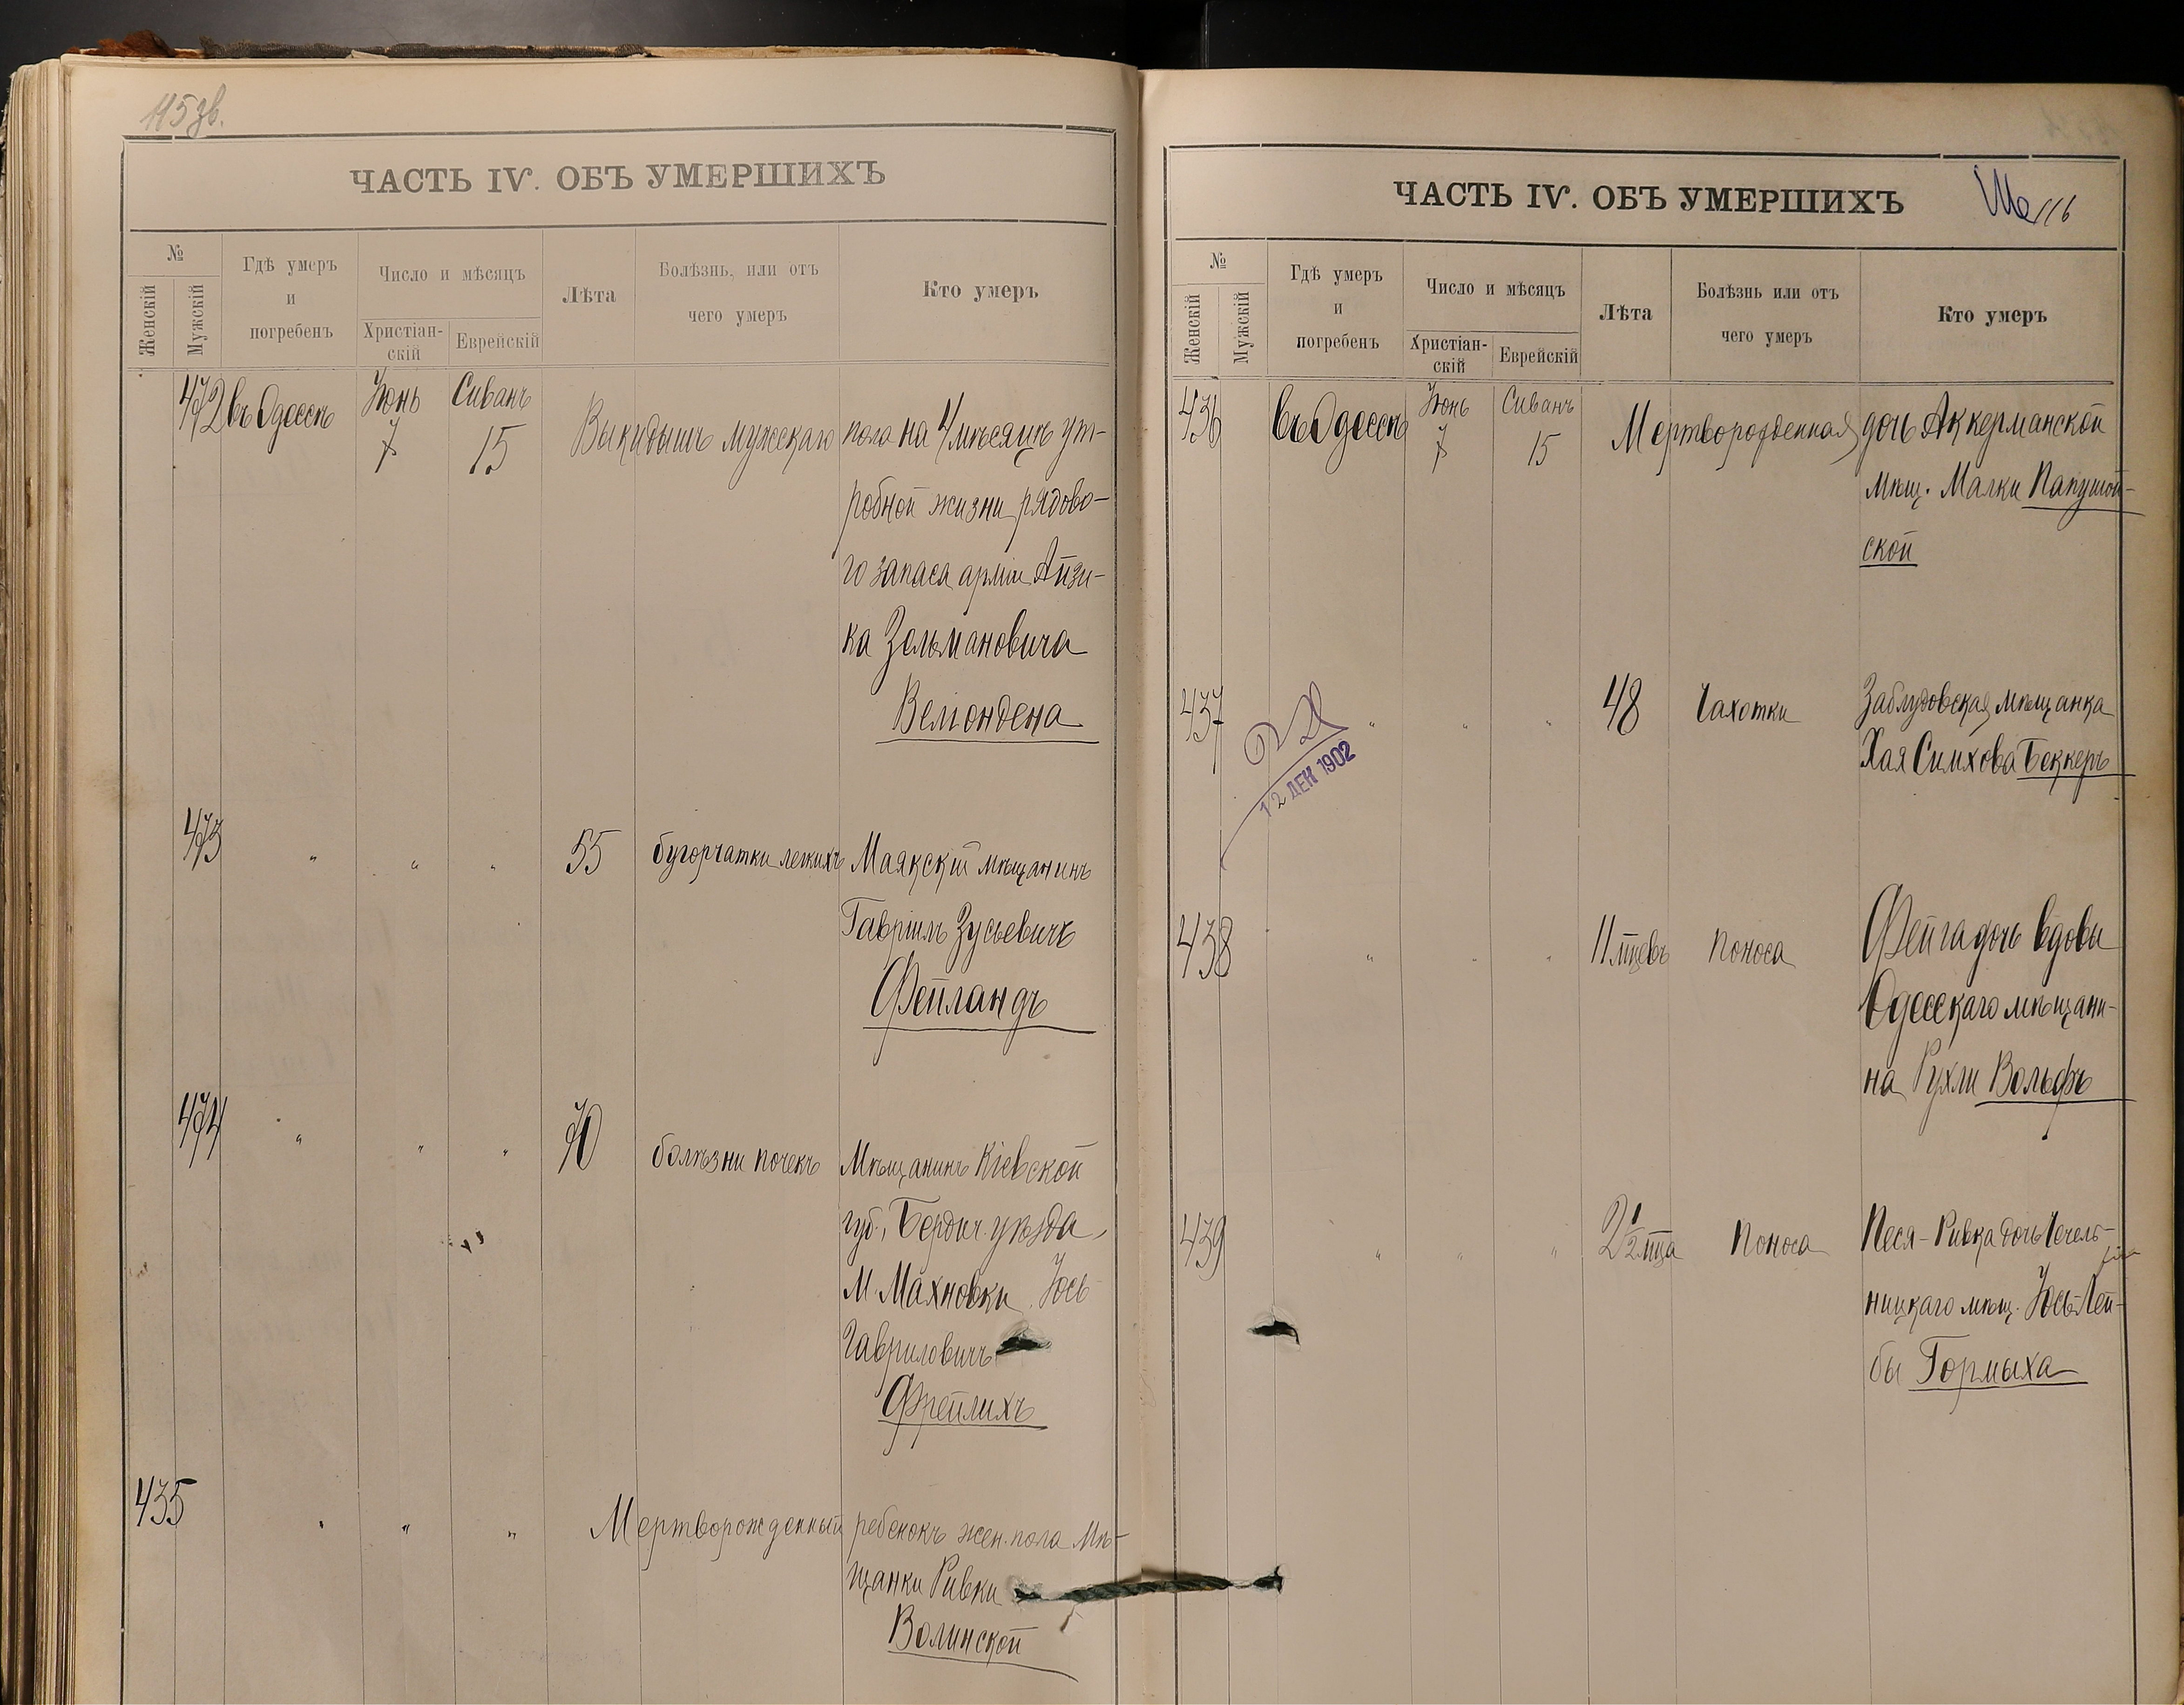 115 зв.
ЧАСТЬ IV. ОБЪ УМЕРШИХЪ
№
Женскій
Мужскій
Гдѣ умеръ
и
погребенъ
Число и мѣсяцъ
Христіан-
скій
Еврейскій
Лѣта
Болѣзнь, или отъ
чего умеръ
Кто умеръ
472 въ Одессѣ Іюнь 7 Сиванъ 15 Выкидышъ мужскаго пола на 4 мѣсяцѣ ут-
робной жизни рядово-
го запаса арміи Айзи-
ка Зельмановича
473 " " " 55 бугорчатки легкихъ Маякскій мѣщанинъ
Гавріилъ Зусьевичъ
Фейландъ
474 " " " 70 болѣзни почекъ Мѣщанинъ Кіевской
губ., Бердич. уѣзда,
м. Махновки Іось
Гавриловичъ
Фрейлихъ
435 " " " Мертворожденный ребенокъ жен. пола мѣ-
щанки Ривки
Волинской
ЧАСТЬ IV. ОБЪ УМЕРШИХЪ
116
№
Женскій
Мужскій
Гдѣ умеръ
и
погребенъ
Число и мѣсяцъ
Христіан-
скій
Еврейскій
Лѣта
Болѣзнь или отъ
чего умеръ
Кто умеръ
436 въ Одессѣ Іюнь 7 Сиванъ 15 Мертворожденная дочь Аккерманской
мѣщ. Малки Папушой-
ской
437 " " " 48 Чахотки Заблудовская мѣщанка
Хая Симхова Беккеръ
12 ДЕК 1902
438 " " " 11 мцевъ Поноса Фейга дочь вдовы
Одесскаго мѣщани-
на Рухли Вольфъ
439 " " " 2 1/2 мца Поноса Песя-Ривка дочь Чечель-
ницкаго мѣщ. Іось-Лей-
бы Гормыха